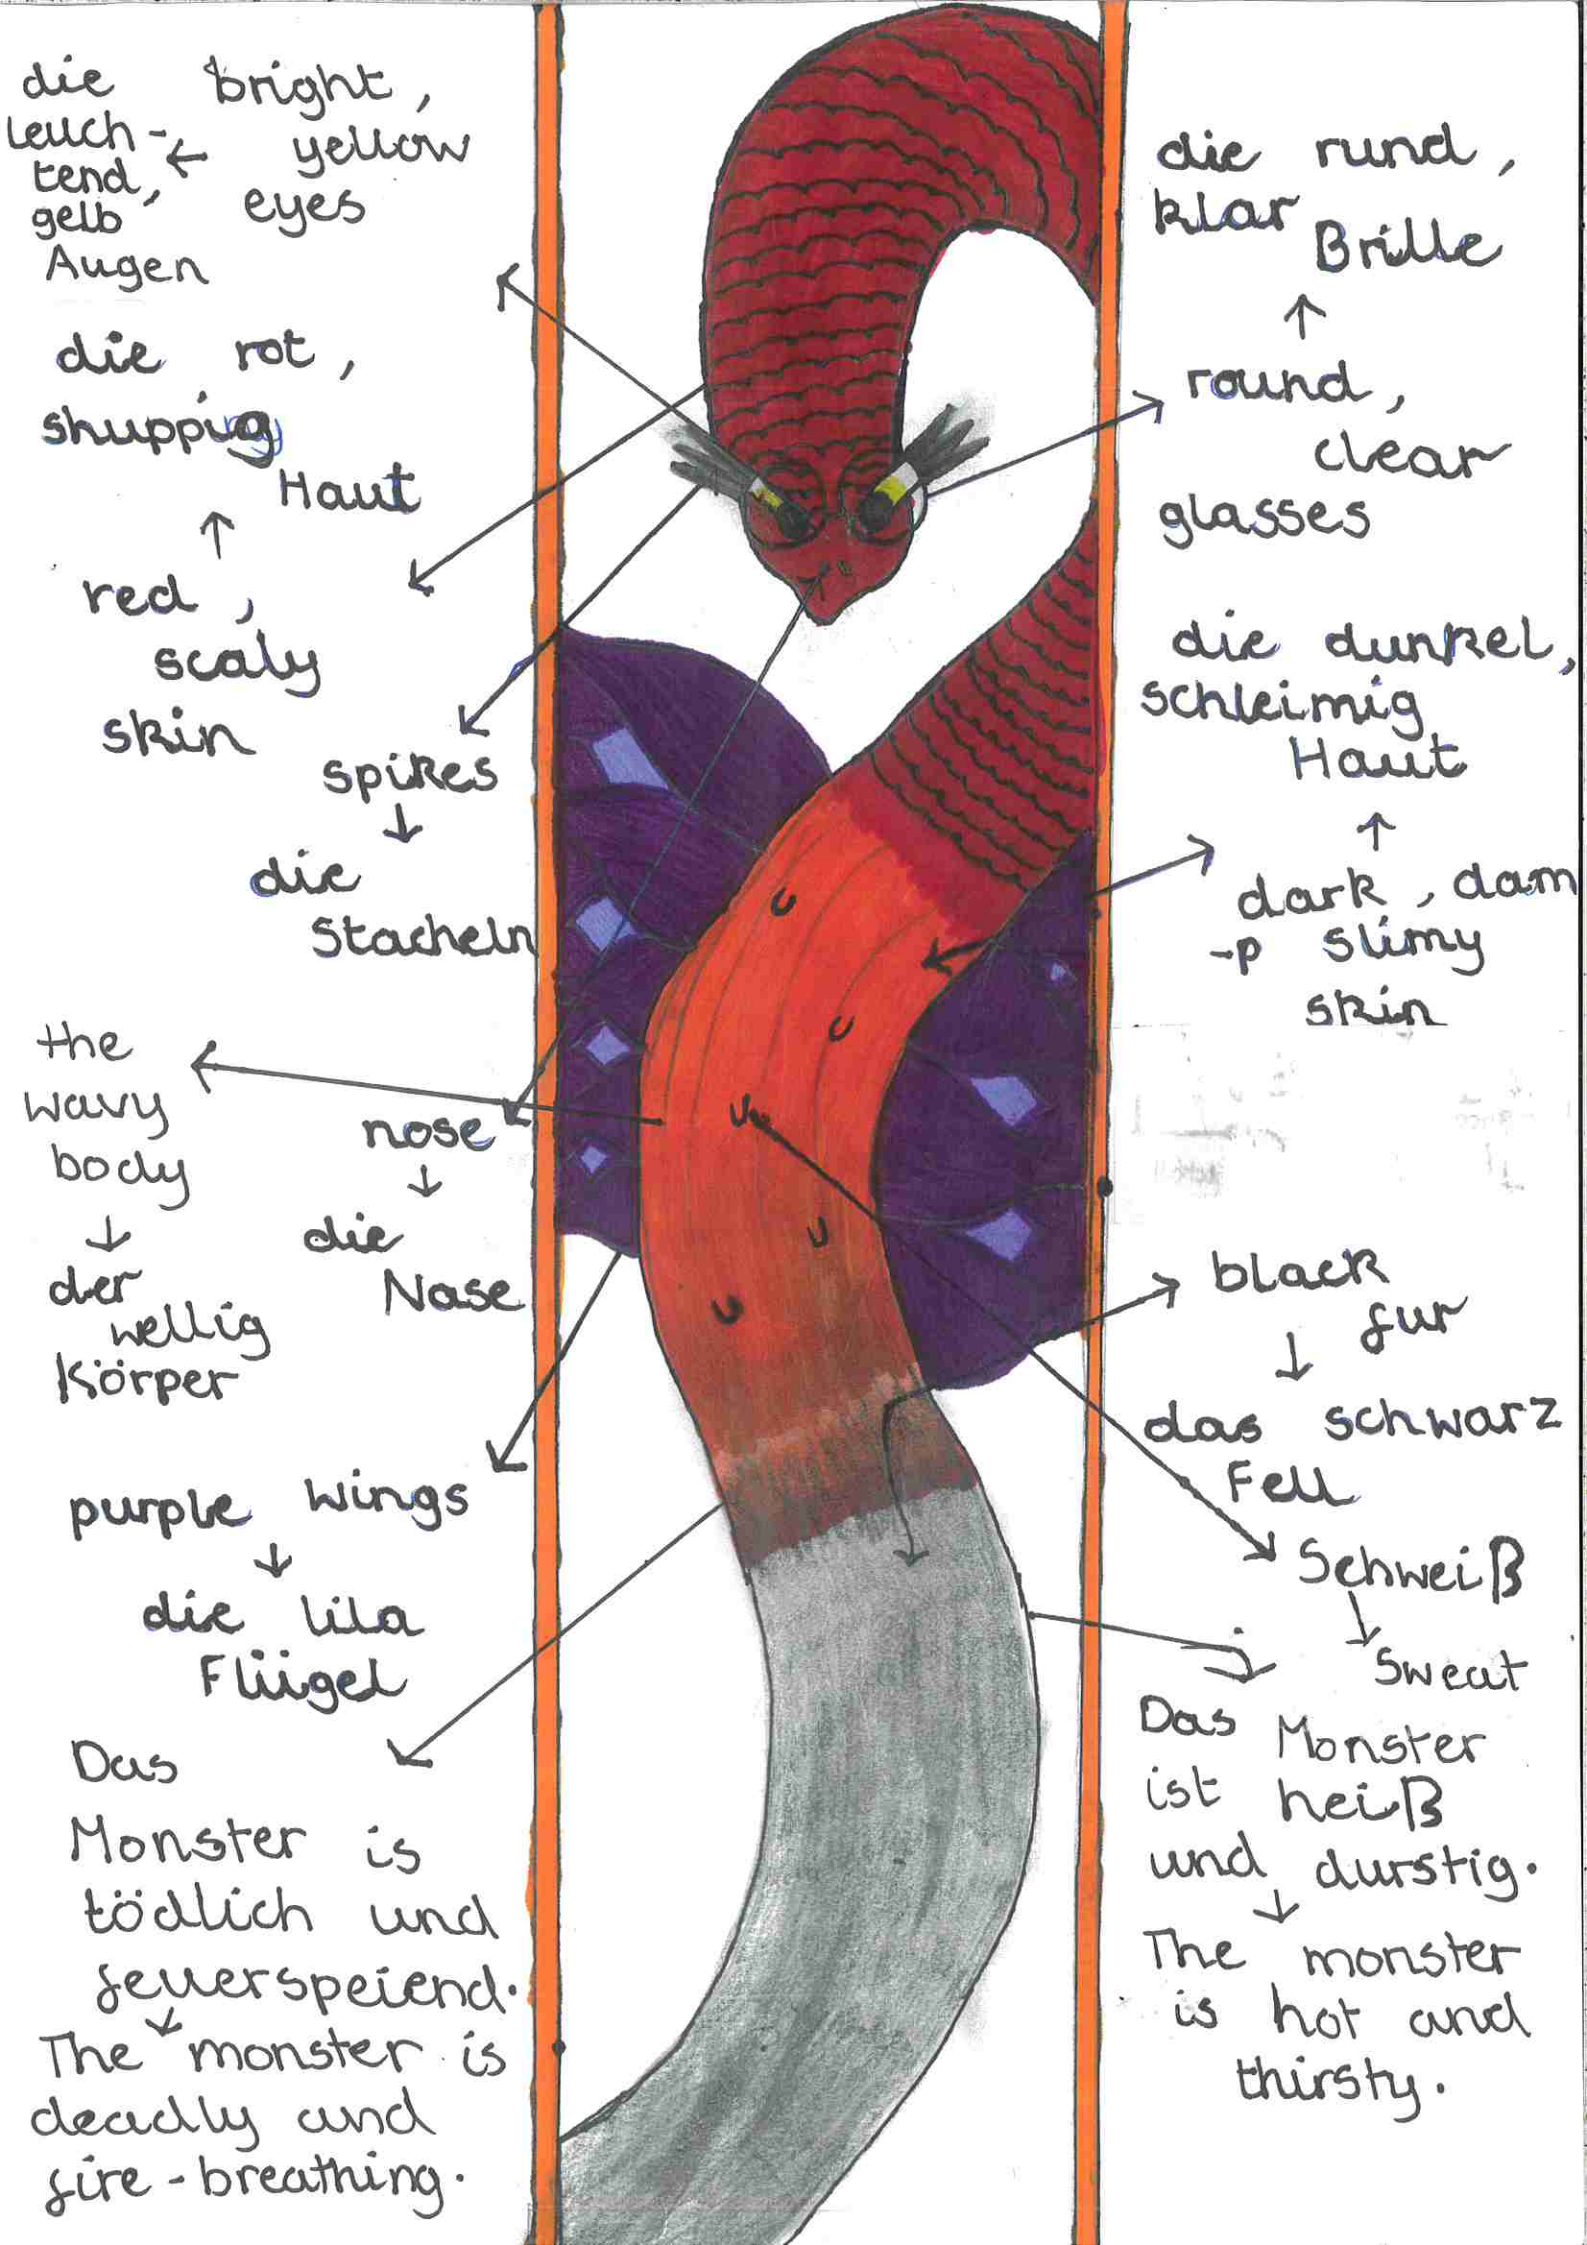 die bright,
leuch-
yellow
tend,
gelb eyes
Augen
die rot,
shuppig
Haut
red,
scaly
skin
spikes
die
Stacheln
the
wavy
body
nose
die
Nase
der
wellig
Körper
purple wings
die lila
Flügel
Das
Monster is
tödlich und
feuerspeiend.
The monster is
deadly and
fire-breathing.
die rund,
klar
Brille
round,
clear
glasses
die dunkel,
schleimig
Haut
dark, dam
-p slimy
skin
black
fur
das schwarz
Fell
Schweiß
Sweat
Das Monster
ist heiß
und durstig.
The monster
is hot and
thirsty.